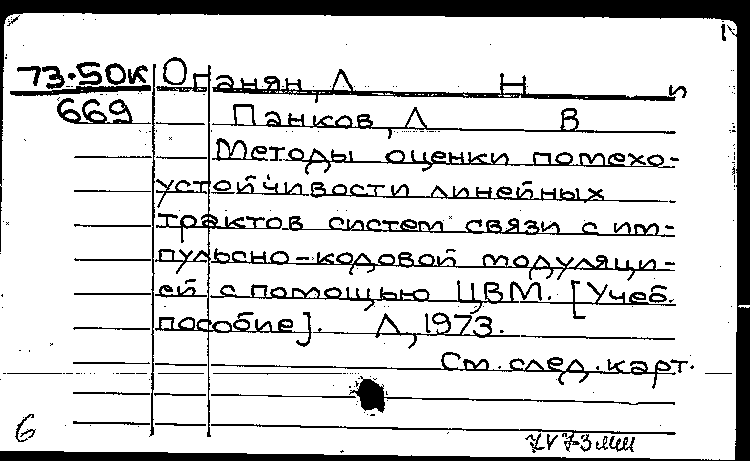 73-50К Оганян, Л Н и
669 Панков, Л В
Методы оценки помехо-
устойчивости линейных
трактов систем связи с им-
пульсно-кодовой модуляци-
ей с помощью ЦВМ. [Учеб.
пособие]. Л, 1973.
См. след. карт.
6